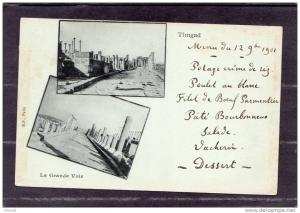 Timgad
Menu du 12 9bre 1901
Potage crème de riz
Poulet au blanc
Filet de Boeuf Parmentier
Paté Bourbonnais
Salade.
Vacherin
- Dessert -
La Grande Voie